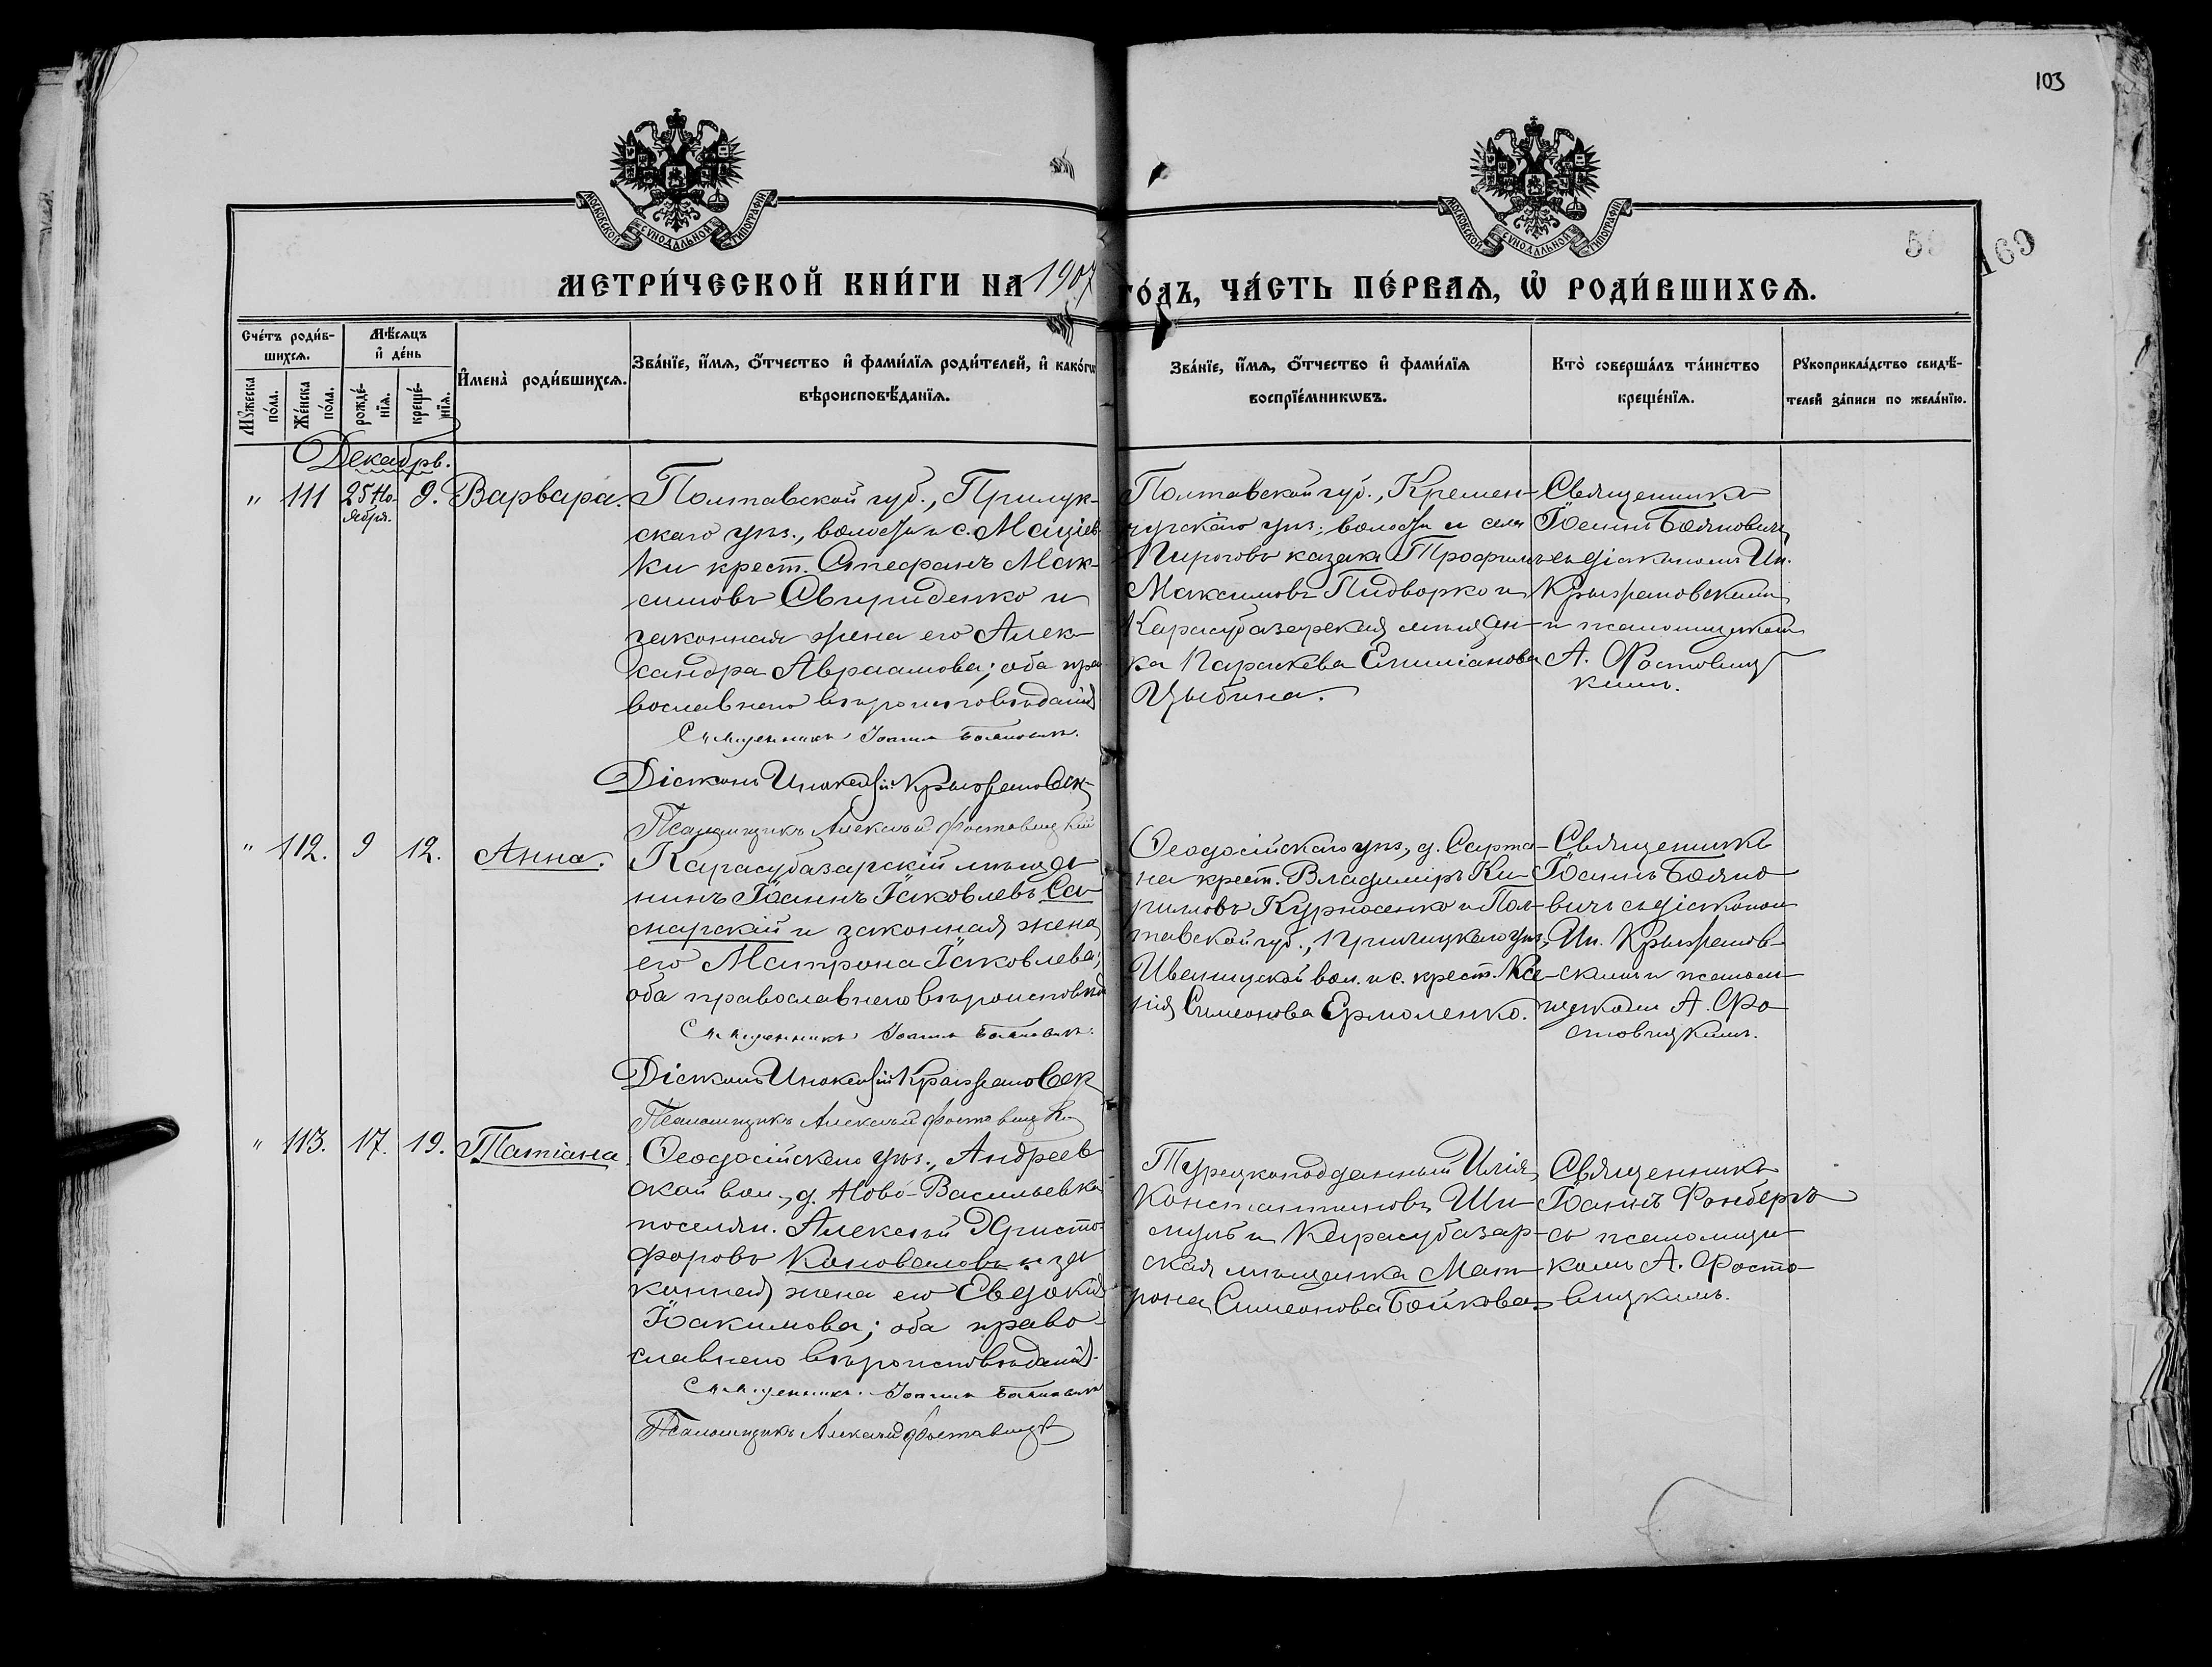 103
МОСКОВСКОЙ СУНОДАЛЬНОЙ ТИПОГРАФІИ
МОСКОВСКОЙ СУНОДАЛЬНОЙ ТИПОГРАФІИ
169
МЕТРИ́ЧЕСКОЙ КНИ́ГИ НА 1907 ГО́ДЪ, ЧА́СТЬ ПЕ́РВАЯ, Ѡ҆ РОДИ́ВШИХСЯ.
Сче́тъ роди́в-
шихсѧ.
Мѣ́сѧцъ
и҆ де́нь
Мꙋ́жеска
по́ла.
Же́нска
по́ла.
рожде́-
нїѧ.
креще́-
нїѧ.
И҆мена̀ роди́вшихсѧ.
Зва́нїе, и҆́мѧ, ѻ҆́тчество и҆ фами́лїѧ роди́телей, и҆ како́гѡ
вѣроисповѣ́данїѧ.
Зва́нїе, и҆́мѧ, ѻ҆́тчество и҆ фами́лїѧ
воспрїе́мникѡвъ.
Кто̀ соверша́лъ та́инство
креще́нїѧ.
Рꙋкоприкла́дство свидѣ́-
телей за́писи по жела́нїю.
Декабрь.
" 111 25 Но-
ября. 9. Варвара.
Полтавской губ., Прилук-
скаго уѣз., волости и с. Мацiев-
ки крест. Стефанъ Мак-
симовъ Свириденко и
законная жена его Алек-
сандра Авраамова; оба пра-
вославнаго вѣроисповѣданія
Священникъ Іоаннъ Баянович.
Діаконъ Инокентій Крыжановск
Псаломщикъ Алексѣй Фостовицкій
Полтавской губ., Кремен-
чугскаго уѣз., волости и села
Пироговъ казакъ Трофимъ
Максимовъ Пидворко и
Карасубазарская мѣщан-
ка Параскева Емиліанова
Цыбина.
Священникъ
Іоаннъ Боянович
съ діакономъ Ин.
Крыжановскимъ
и псаломщикомъ
А. Фостовиц
кимъ.
" 112. 9 12. Анна.
Карасубазарскій мѣща-
нинъ Іоаннъ Іаковлевъ Са-
марскій и законная жена
его Матрона Іаковлева;
оба православнаго вѣроисповѣд
Священникъ Іоаннъ Баянович.
Діаконъ Инокентій Крыжановск
Псаломщикъ Алексѣй Фостовицкі
Ѳеодосійскаго уѣз., д. Сарта-
на крест. Владиміръ Ки-
рилловъ Курносенко и Пол-
тавской губ., Прилуцкаго уѣз.,
Иваницкой вол. и с. крест. Ксе-
нія Симеонова Ермоленко.
Священникъ
Іоаннъ Бояно
вичъ съ діакономъ
Ин. Крыжанов-
скимъ и псалом-
щикомъ А. Фо
стовицкимъ.
" 113. 17. 19. Татіана
Ѳеодосійскаго уѣз., Андреев
ской вол., д. Ново-Васильевка
поселян. Алексѣй Христо-
форовъ Коноваловъ и за
конная жена его Евдокія
Іоакимова; оба право-
славнаго вѣроисповѣданія.
Священникъ Іоаннъ Баянович
Псаломщикъ Алексѣй Фостовицк
Турецкоподданный Илія
Константиновъ
и Карасубазар-
ская мѣщанка Мат-
рона Симеонова Бойкова.
Священникъ
Іоаннъ Фонбергъ
съ псаломщи
комъ А. Фосто-
вицкимъ.